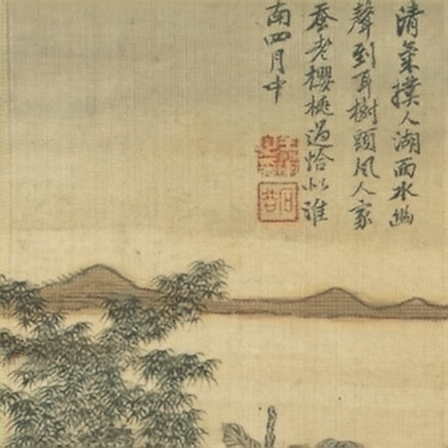 清氣撲人湖面水幽
聲到耳樹頭風人家
蚕老櫻桃過恰似淮
南四月中
石谷